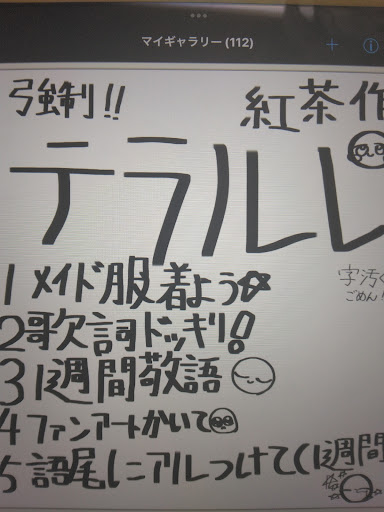 マイギャラリー (112)
強制!!
紅茶作
テラルレ
1 メイド服着よう☆
字汚く
ごめん!
2歌詞ドッキリ!
3 1週間敬語
4 ファンアートかいて
5 語尾にアルつけてく1週間